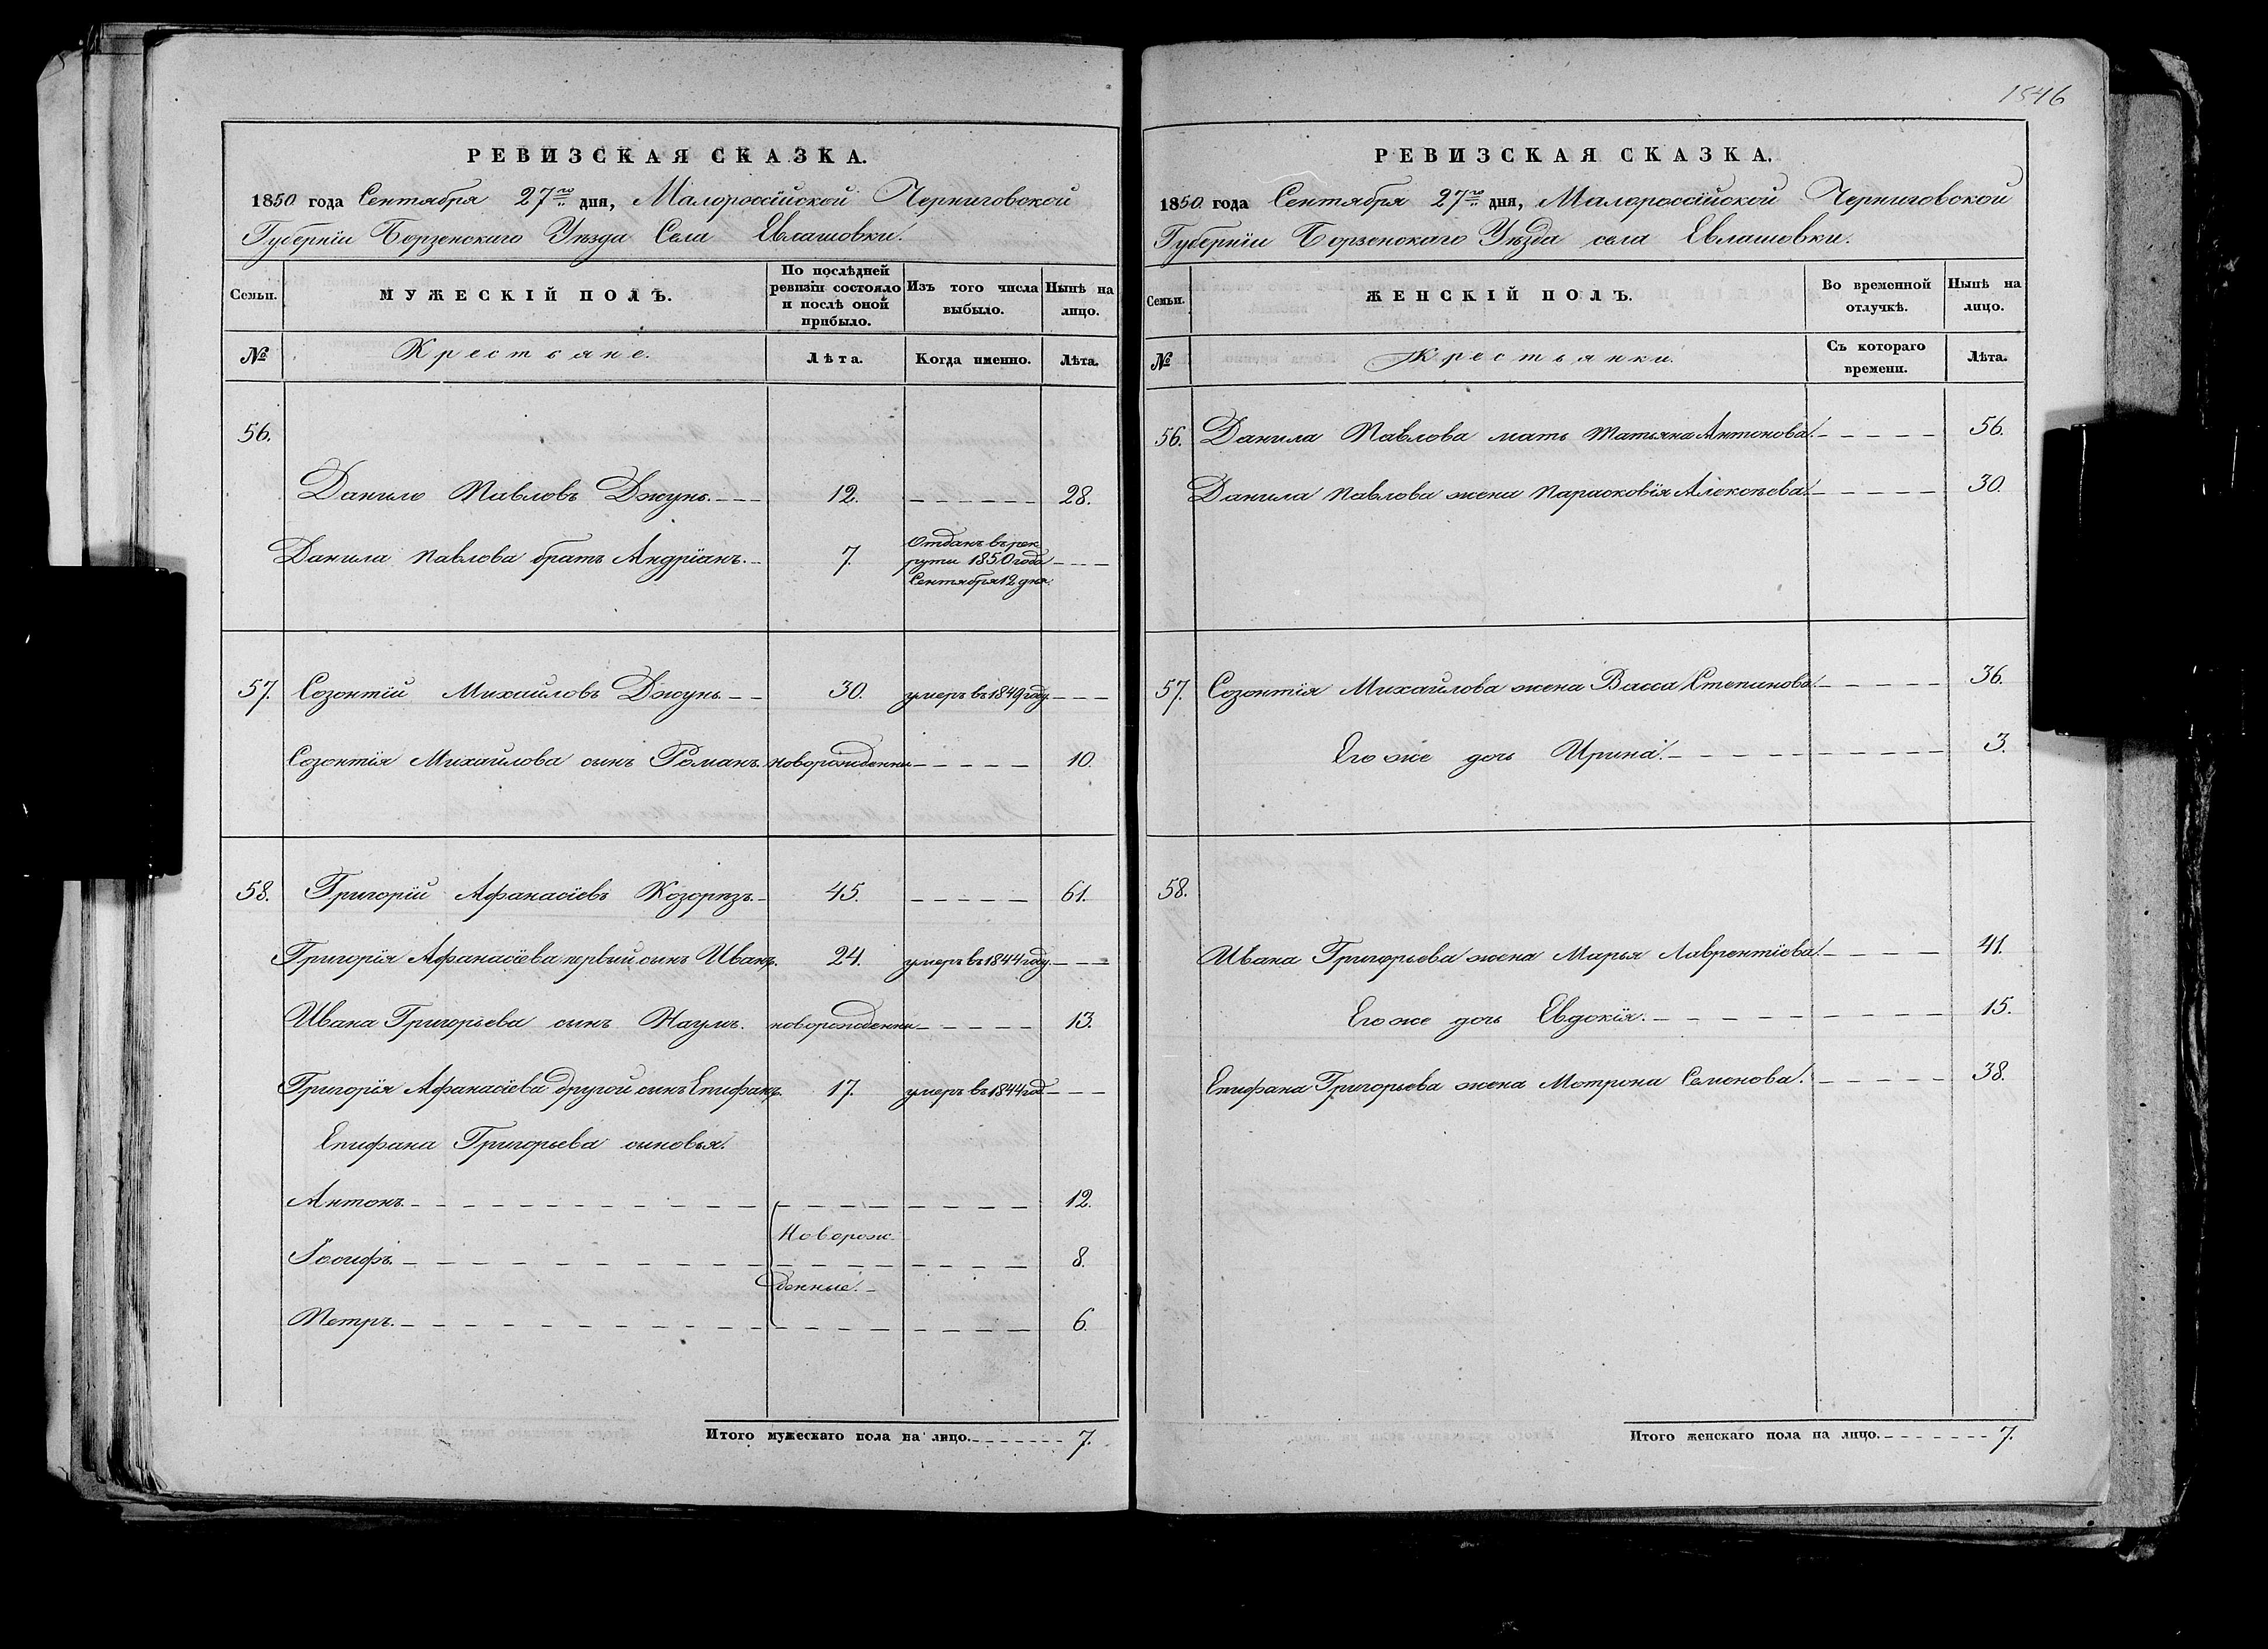 1546
РЕВИЗСКАЯ СКАЗКА.
1850 года Сентября 27го дня, Малороссійской Черниговской
Губерніи Борзенскаго Уѣзда Села Евлашовки.
Семьи.
МУЖЕСКІЙ ПОЛЪ.
По послѣдней ревизіи состояло и послѣ оной прибыло.
Изъ того числа выбыло.
Нынѣ на лицо.
№
Крестьяне.
Лѣта.
Когда именно.
Лѣта.
56.
Данило Павловъ Джунь. 12. 28.
Данила Павлова братъ Андріанъ. 7. Отданъ въ рек
руты 1850 года
Сентября 12 дня.
57. Созонтій Михайловъ Джунь 30. умеръ въ 1849 году.
Созонтія Михайлова сынъ Романъ. новорожденны 10.
58. Григорій Афанасіевъ Козорізъ. 45. 61.
Григорія Афанасіева первый сынъ Иванъ. 24. умеръ въ 1844 году.
Ивана Григорьева сынъ Наумъ. новорожденны 13.
Григорія Афанасіева другой сынъ Епифанъ. 17. умеръ въ 1844 год.
Епифана Григорьева сыновья.
Антонъ. 12.
Новорож
Іосифъ. 8.
денные.
Петръ. 6.
Итого мужескаго пола на лицо. 7.
РЕВИЗСКАЯ СКАЗКА.
1850 года Сентября 27го дня, Малороссійской Черниговской
Губерніи Борзенскаго Уѣзда села Евлашовки.
Семьи.
ЖЕНСКІЙ ПОЛЪ.
Во временной отлучкѣ.
Нынѣ на лицо.
№
Крестьянки.
Съ котораго времени.
Лѣта.
56. Данила Павлова мать Татьяна Антонова. 56.
Данила Павлова жена Парасковія Алексѣева. 30.
57. Созонтія Михайлова жена Васса Степанова. 36.
Его же дочь Ирина. 3.
58.
Ивана Григорьева жена Марья Лаврентіева. 41.
Его же дочь Евдокія. 15.
Епифана Григорьева жена Мотрона Семенова. 38.
Итого женскаго пола на лицо. 7.